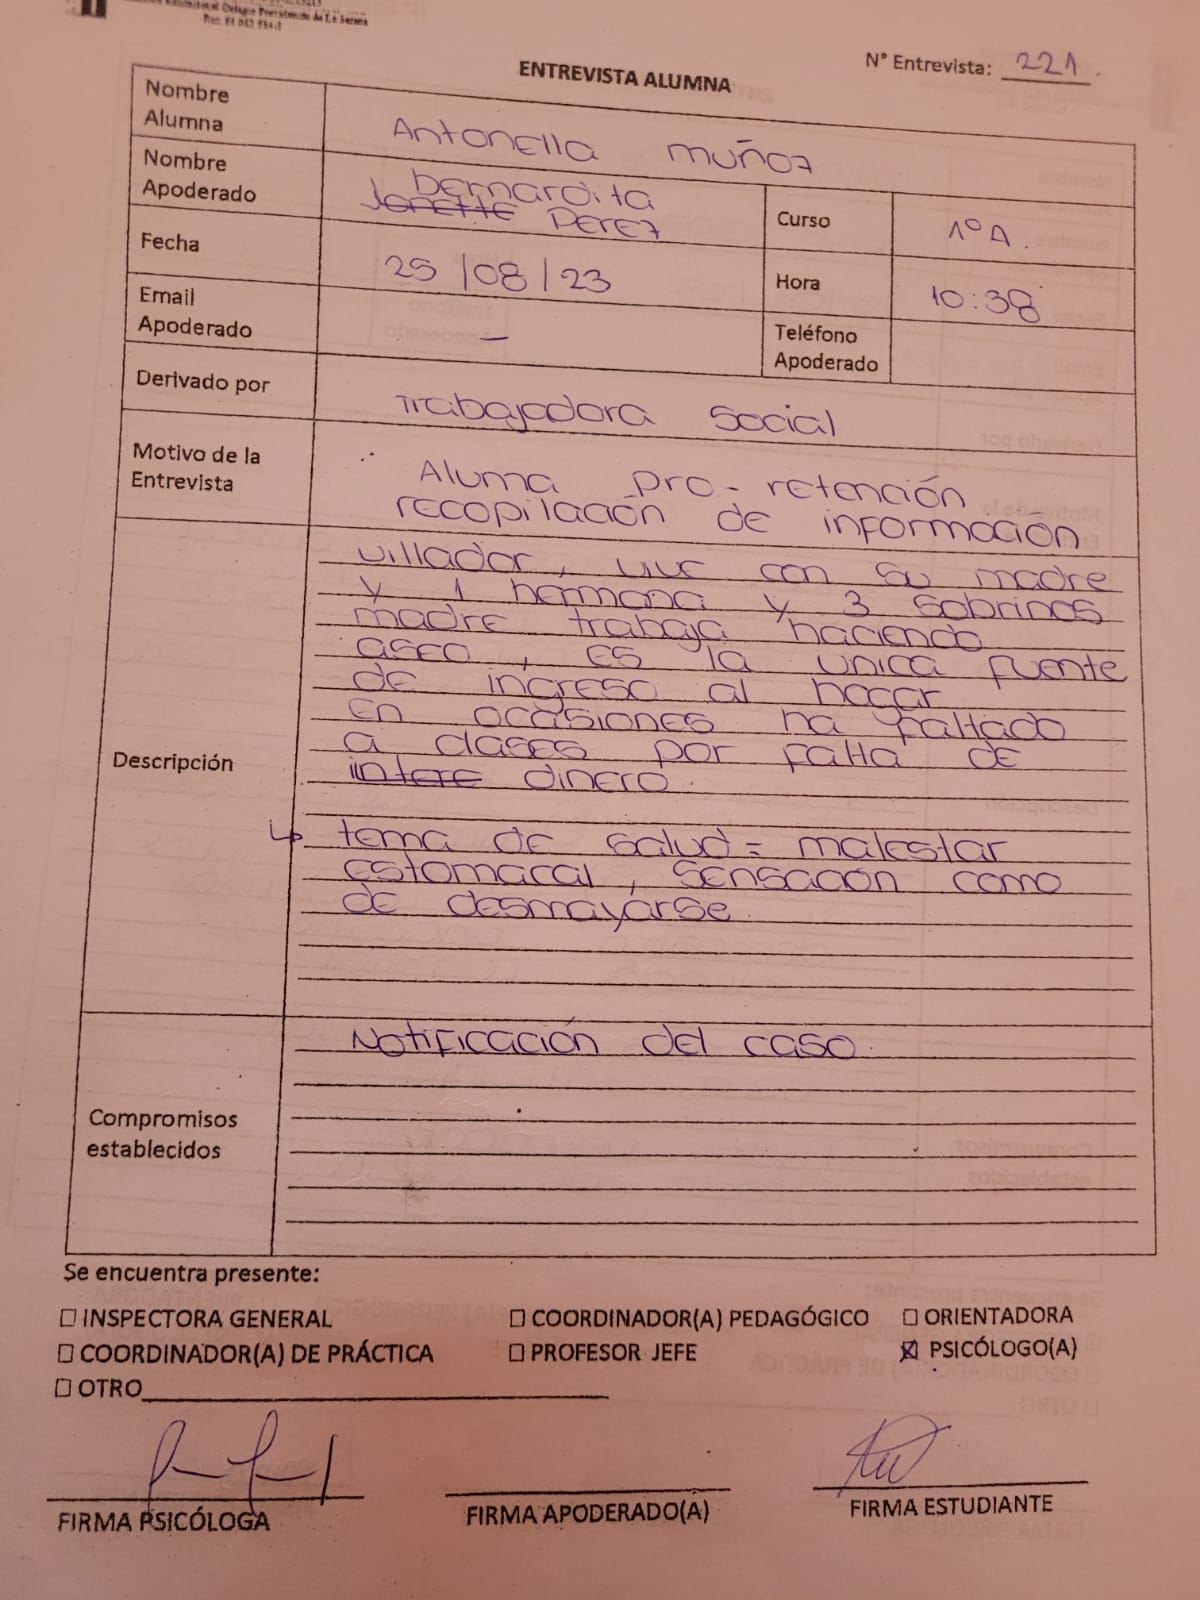 Educacional Colegio Providencia de La Serena
N° Entrevista: 221.
ENTREVISTA ALUMNA
Nombre Alumna
Antonella muñoz
Nombre Apoderado
bernardita
Janette Perez
Curso
1º A.
Fecha
25/08/23
Hora
10:38
Email Apoderado
—
Teléfono Apoderado
Derivado por
Trabajadora Social
Motivo de la Entrevista
Aluma pro-retención
recopilación de información
Descripción
villador, vive con su madre
y 1 hermana y 3 sobrinos
madre trabaja haciendo
aseo, es la unica fuente
de ingreso al hogar
En ocasiones ha faltado
a clases por falta de
intere dinero.
↳ tema de salud = malestar
estomacal, sensación como
de desmayarse.
Compromisos establecidos
Notificación del caso.
Se encuentra presente:
☐ INSPECTORA GENERAL ☐ COORDINADOR(A) PEDAGÓGICO ☐ ORIENTADORA
☐ COORDINADOR(A) DE PRÁCTICA ☐ PROFESOR JEFE ☒ PSICÓLOGO(A)
☐ OTRO
FIRMA PSICÓLOGA FIRMA APODERADO(A) FIRMA ESTUDIANTE